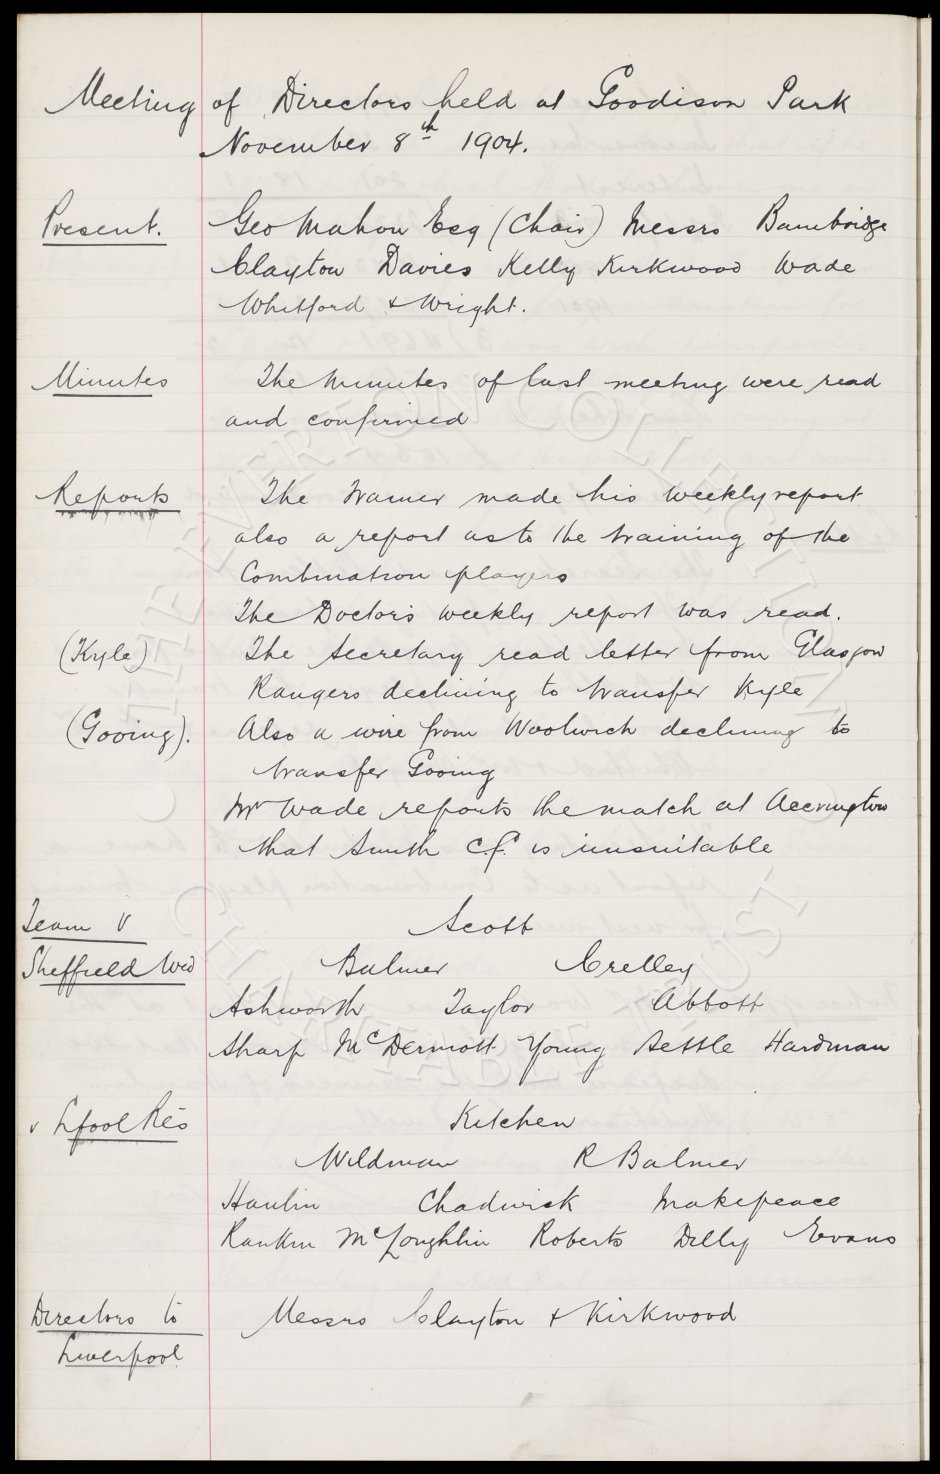 Meeting of Directors held at Goodison Park
November 8th 1904.
Present. Geo Mahon Esq (Chair) Messrs Bambridge
Clayton Davies Kelly Kirkwood Wade
Whitford & Wright.
Minutes The Minutes of last meeting were read
and confirmed
Reports The Trainer made his weekly report
also a report as to the training of the
Combination players
The Doctor's weekly report was read.
(Kyle) The Secretary read letter from Glasgow
Rangers declining to transfer Kyle
(Gooing). Also a wire from Woolwich declining to
transfer Gooing
Mr Wade reports the match at Accrington
that Smith C.F. is unsuitable
Team V Scott
Sheffield Wed Balmer Crelley
Ashworth Taylor Abbott
Sharp McDermott Young Settle Hardman
v L'pool Res Kitchen
Wildman R Balmer
Hanlin Chadwick Makepeace
Rankin McLoughlin Roberts Dilly Evans
Directors to Messrs Clayton & Kirkwood
Liverpool
THE EVERTON COLLECTION
CHARITABLE TRUST